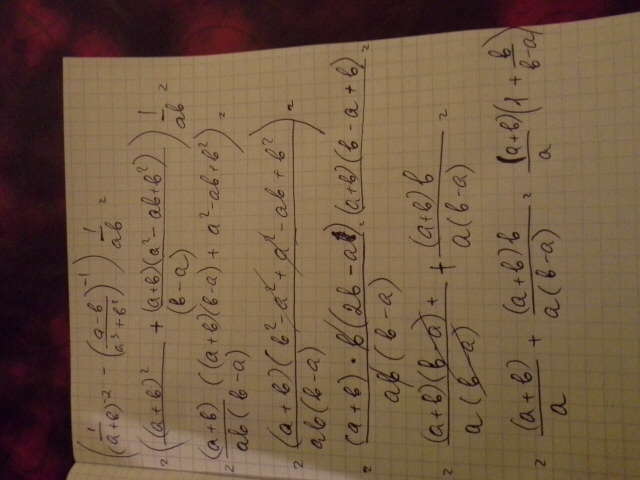 (1/(a+b)^-2 - ((a-b)/(a³+b³))^-1) 1/ab =
= ((a+b)²/ + (a+b)(a²-ab+b²)/(b-a)) 1/ab =
= (a+b)((a+b)(b-a)+a²-ab+b²)/ab(b-a) =
= (a+b)(b²-a²+a²-ab+b²)/ab(b-a) =
= (a+b)·b(2b-a)/ab(b-a) = (a+b)(b-a+b)/ =
= (a+b)(b-a)+/a(b-a) + (a+b)b/a(b-a) =
= (a+b)/a + (a+b)b/a(b-a) = (a+b)/a (1+b/(b-a))